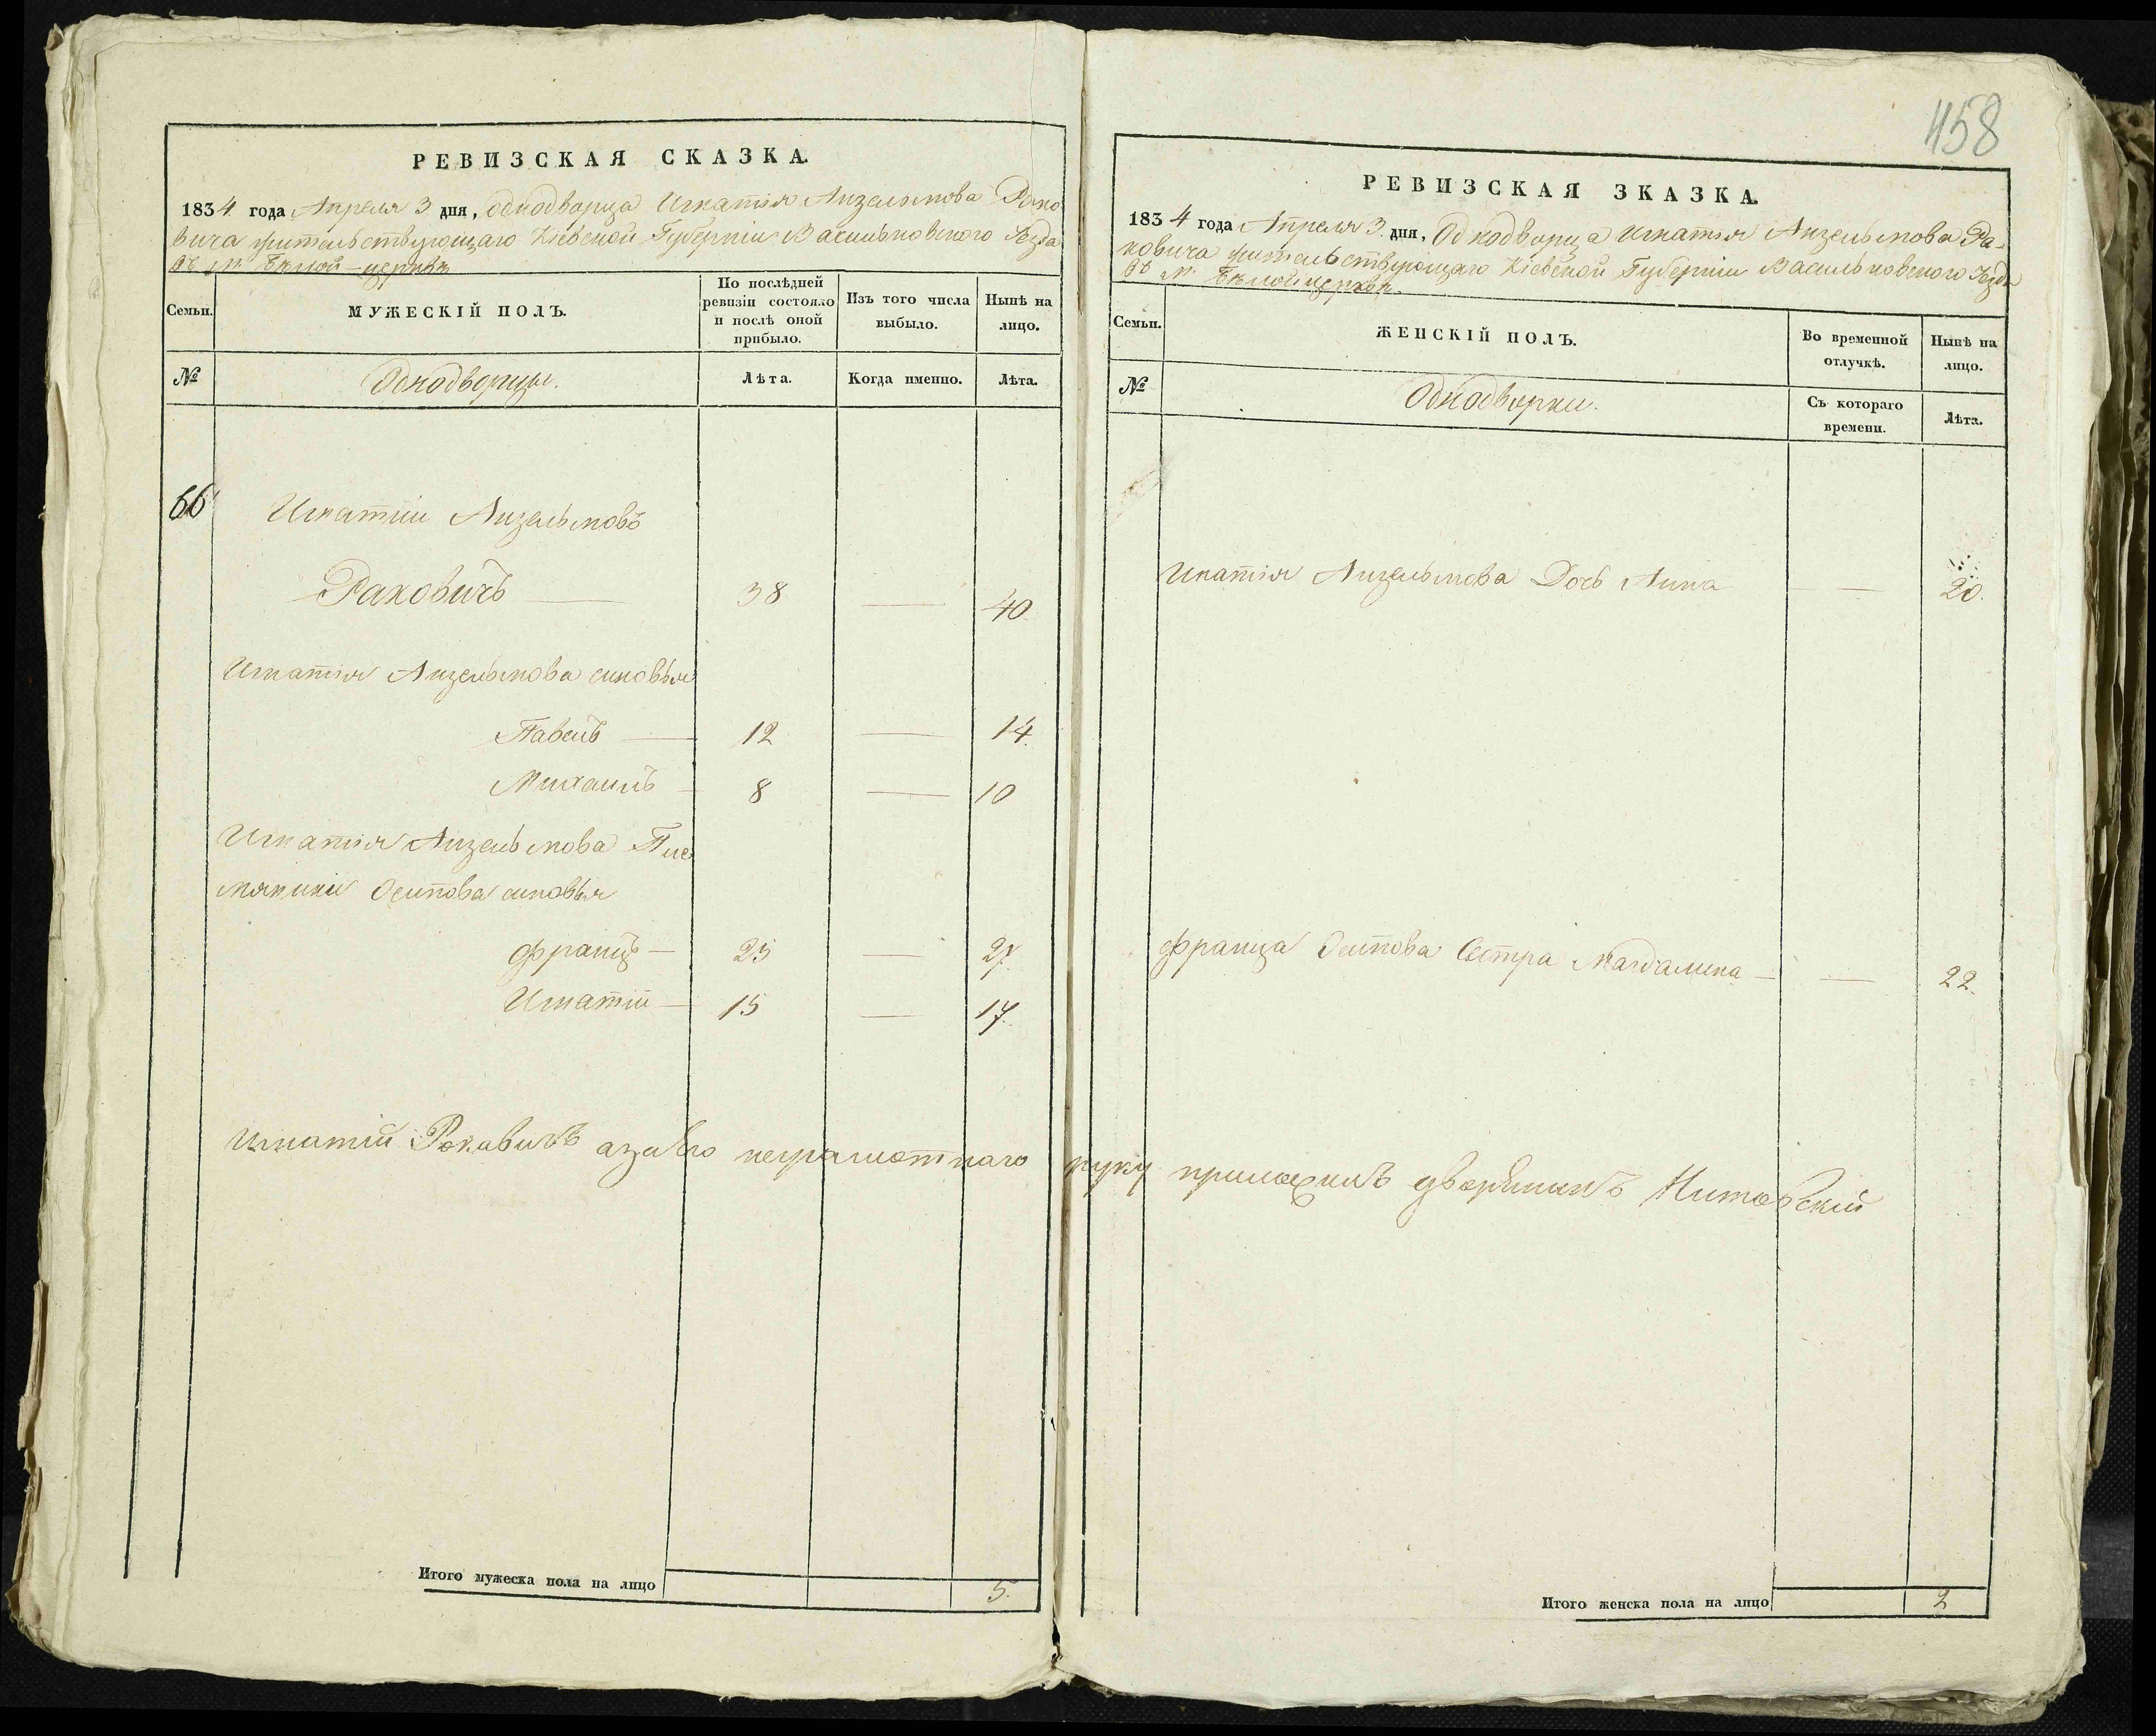 РЕВИЗСКАЯ СКАЗКА.
1834 года Апреля 3 дня, однодворца Игнатія Анзельмова Рако
вича жительствующаго Кіевской Губерніи Васильковского Уезда
въ м. Бѣлой-церквѣ
Семьи.
МУЖЕСКІЙ ПОЛЪ.
По послѣдней
ревизіи состояло
и послѣ оной
прибыло.
Изъ того числа
выбыло.
Нынѣ на
лицо.
№
Однодворцы.
Лѣта.
Когда именно.
Лѣта.
66
Игнатій Анзельмовъ
Раковичъ — 38 — 40
Игнатія Анзельмова сыновья
Павелъ — 12 — 14
Михаилъ — 8 — 10
Игнатія Анзельмова Пле
мянники Осипова сыновья
Францъ — 25 — 27
Игнатій — 15 — 17.
Игнатій Раковичъ а за его неграмотнаго руку приложилъ дворянинъ
Итого мужеска пола на лицо 5.
458
РЕВИЗСКАЯ ЗКАЗКА.
1834 года Апреля 3 дня, Однодворца Игнатія Анзельмова Ра-
ковича жительствующаго Кіевской Губерніи Васильковского Уезда
въ м. Бѣлойцерквѣ.
Семьи.
ЖЕНСКІЙ ПОЛЪ.
Во временной
отлучкѣ.
Нынѣ на
лицо.
№
Однодворки.
Съ котораго
времени.
Лѣта.
Игнатія Анзельмова Дочь Анна — — 20.
Франца Осипова Сестра Магдалина — — 22.
Итого женска пола на лицо 2